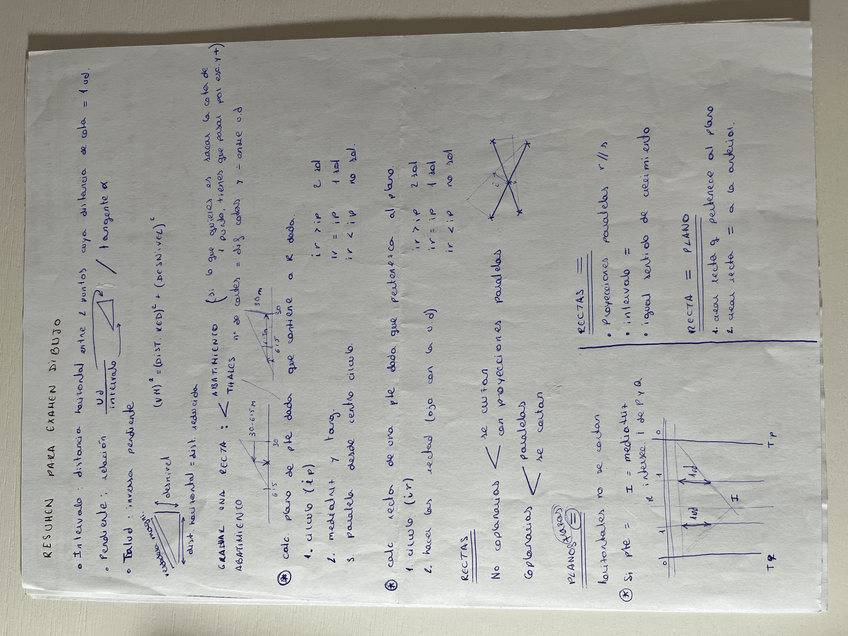 RESUMEN PARA EXAMEN DIBUJO.
• Intervalo: distancia horizontal entre 2 puntos cuya distancia de cota = 1 ud.
• Pendiente: relación ud / intervalo / tangente α
• Talud: inversa pendiente
(VM)² = (DIST. RED)² + (DESNIVEL)²
desnivel
dist. horizontal = dist. reducida
GRADUAR UNA RECTA: < ABATIMIENTO
THALES
(si lo que quieres es sacar la cota de
1 punto, tienes que pasar por ese x+)
nº de cortes = dif cotas y - entre u.d
ABATIMIENTO
6'5 30
30-6'5m
6'5 30
30m
* calc plano de pte dada que contiene a R dada.
1. círculo (ip)
2. mediatriz y tang.
3. paralela desde centro círculo.
ir > ip 2 sol
ir = ip 1 sol
ir < ip no sol.
* calc rectas de una pte dada que pertenezca al plano.
1. círculo (ir)
2. hacer las rectas (ojo con la u.d)
ir > ip 2 sol
ir = ip 1 sol
ir < ip no sol
RECTAS
No coplanarias < se cortan
con proyecciones paralelas
Coplanarias < paralelas
se cortan
PLANOS =
horizontales no se cortan
* Si pte = I = mediatriz
R intersec. I de P y Q
0 1 1 0
1ud 1ud
I
TQ TP
RECTAS =
• Proyecciones paralelas r//s
• intervalo =
• igual sentido de crecimiento
RECTA = PLANO
1. crear recta q pertenece al plano
2. crear recta = a la anterior.